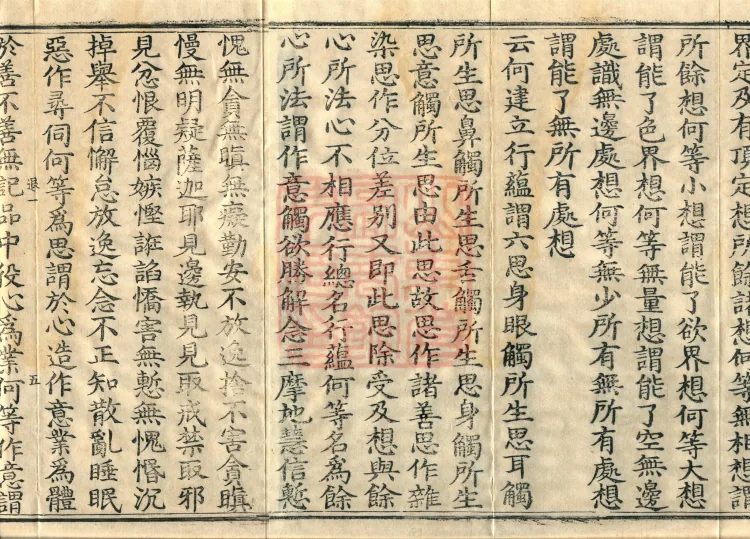 界定及有頂定想所餘諸想何等無相想謂
所餘想何等小想謂能了欲界想何等大想
謂能了色界想何等無量想謂能了空無邊
處識無邊處想何等無少所有無所有處想
謂能了無所有處想
云何建立行蘊謂六思身眼觸所生思耳觸
所生思鼻觸所生思舌觸所生思身觸所生
思意觸所生思由此思故思作諸善思作雜
染思作分位差别又即此思除受及想與餘
心所法心不相應行總名行蘊何等名爲餘
心所法謂作意觸欲勝解念三摩地慧信慙
愧無貪無瞋無癡勤安不放逸捨不害貪瞋
慢無明疑薩迦耶見邊執見見取戒禁取邪
見忿恨覆惱嫉慳誑諂憍害無慙無愧惛沉
掉舉不信懈怠放逸忘念不正知散亂睡眠
惡作尋伺何等爲思謂於心造作意業爲體
一 五
於善不善無記品中役心爲業何等作意謂